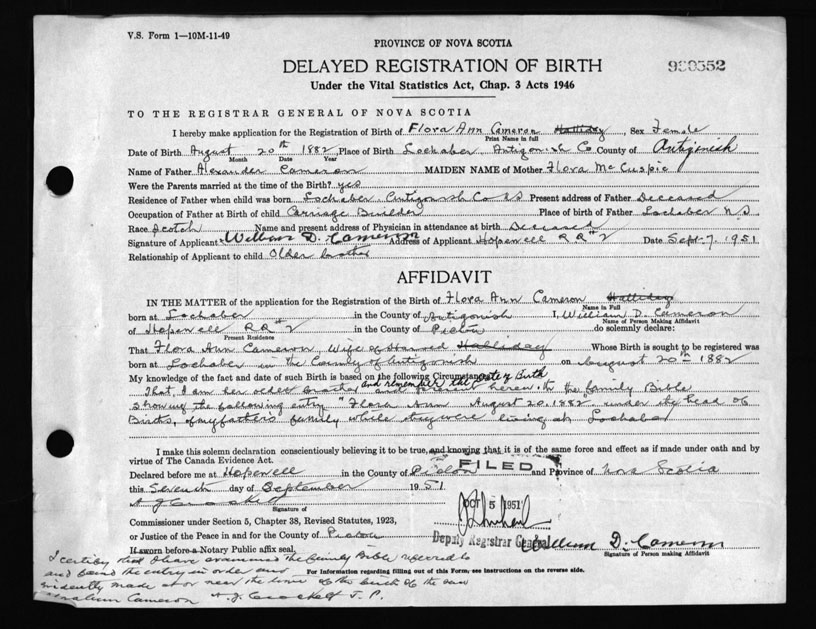 V.S. Form 1—10M-11-49
PROVINCE OF NOVA SCOTIA
DELAYED REGISTRATION OF BIRTH
Under the Vital Statistics Act, Chap. 3 Acts 1946
TO THE REGISTRAR GENERAL OF NOVA SCOTIA
I hereby make application for the Registration of Birth of Flora Ann Cameron Halliday, Sex Female
Print Name in full
Date of Birth August 20th 1882, Place of Birth Lochaber, Antigonish Co County of Antigonish
Month Date Year
Name of Father Alexander Cameron MAIDEN NAME of Mother Flora McCuspic
Were the Parents married at the time of the Birth? yes
Residence of Father when child was born Lochaber Antigonish Co NS Present address of Father Deceased
Occupation of Father at Birth of child Carriage Builder Place of birth of Father Lochaber N.S
Race Scotch Name and present address of Physician in attendance at birth Deceased
Signature of Applicant William D. Cameron Address of Applicant Hopewell RR#2 Date Sept-7, 1951
Relationship of Applicant to child Older brother
AFFIDAVIT
IN THE MATTER of the application for the Registration of the Birth of Flora Ann Cameron Halliday
Name in Full
born at Lochaber in the County of Antigonish I, William D. Cameron
Name of Person Making Affidavit
of Hopewell RR#2 in the County of Pictou do solemnly declare:
Present Residence
That Flora Ann Cameron, Wife of Halliday Whose Birth is sought to be registered was
born at Lochaber in the County of Antigonish on August 20th 1882
My knowledge of the fact and date of such Birth is based on the following Circumstances
That, I am her older brother and remember the date of birth and herewith the family Bible
showing the following entry "Flora Ann August 20, 1882" under the head of
Births, of my father's family while they were living at Lochaber
I make this solemn declaration conscientiously believing it to be true, and knowing that it is of the same force and effect as if made under oath and by
virtue of The Canada Evidence Act.
Declared before me at Hopewell in the County of Pictou and Province of Nova Scotia
FILED
this Seventh day of September 1951
OCT 5 1951
A J Crockett
Signature of
Commissioner under Section 5, Chapter 38, Revised Statutes, 1923,
or Justice of the Peace in and for the County of Pictou
Deputy Registrar General
William D. Cameron
Signature of Person making Affidavit
If sworn before a Notary Public affix seal.
I certify that I have examined the family Bible referred to
and found the entry in order and
For information regarding filling out of this Form, see instructions on the reverse side.
evidently made at or near the time of the birth of the
Cameron A. J. Crockett J. P.